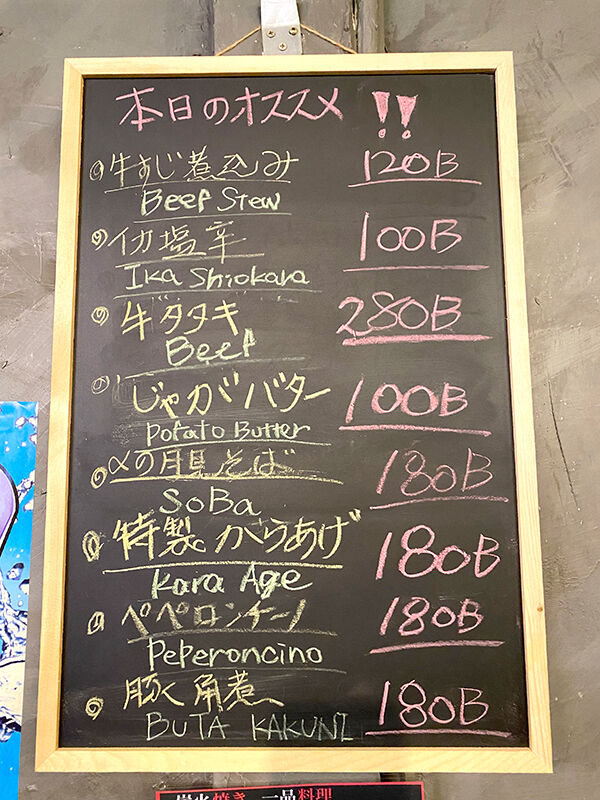 本日のオススメ!!
牛すじ煮込み 120B
Beef Stew
イカ塩辛 100B
Ika Shiokara
牛タタキ 280B
Beef
じゃがバター 100B
Potato Butter
〆の月見そば 180B
SoBa
特製からあげ 180B
Kara Age
ペペロンチーノ 180B
Peperoncino
豚く角煮 180B
BUTA KAKUNI
炭火焼き 一品料理